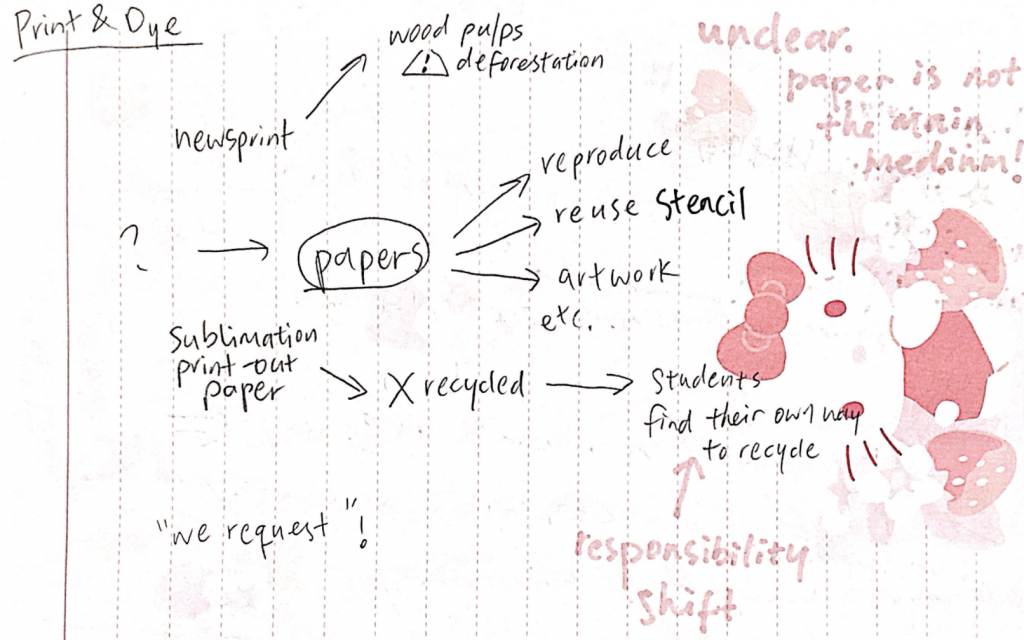 Print & Dye
wood pulps
deforestation
newsprint
unclear.
paper is not
the main
medium!
reproduce
reuse stencil
artwork
etc.
?
papers
sublimation
print-out
paper
X recycled
students
find their own way
to recycle
"we request"!
responsibility
shift